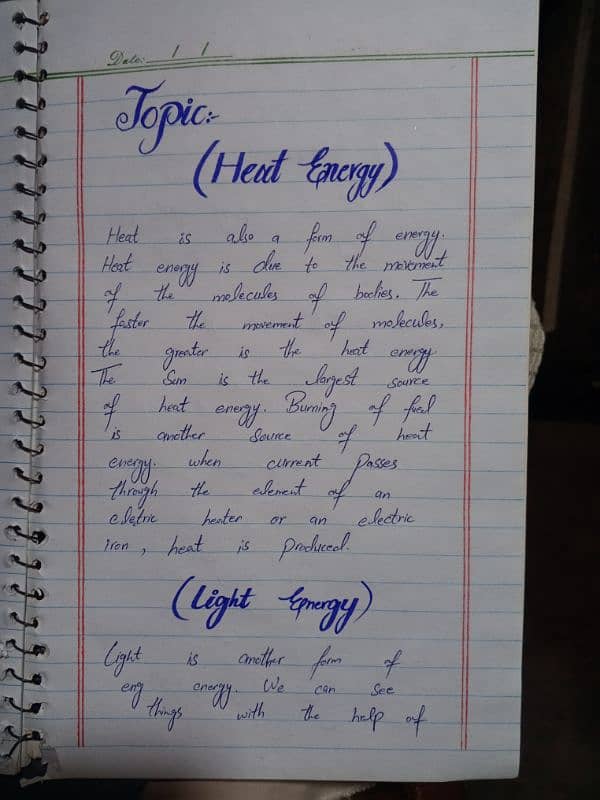 Date: / /
Topic:-
(Heat Energy)
Heat is also a form of energy.
Heat energy is due to the movement
of the molecules of bodies. The
faster the movement of molecules,
the greater is the heat energy
The Sun is the largest source
of heat energy. Burning of fuel
is another source of heat
energy. when current passes
through the element of an
eletric heater or an electric
iron, heat is produced.
(Light Energy)
Light is another form of
eng energy. We can see
things with the help of